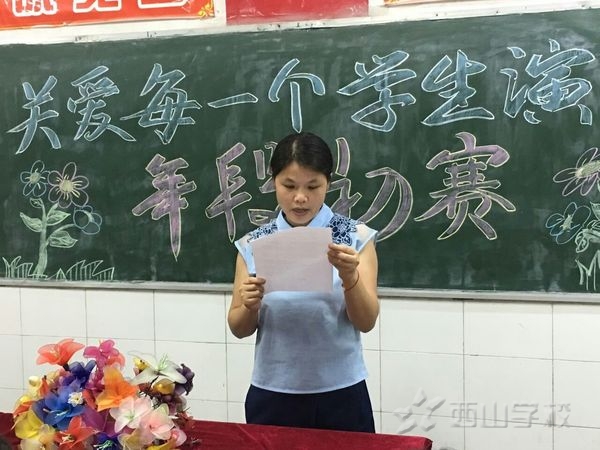 关爱每一个学生演
年段初赛
西山学校